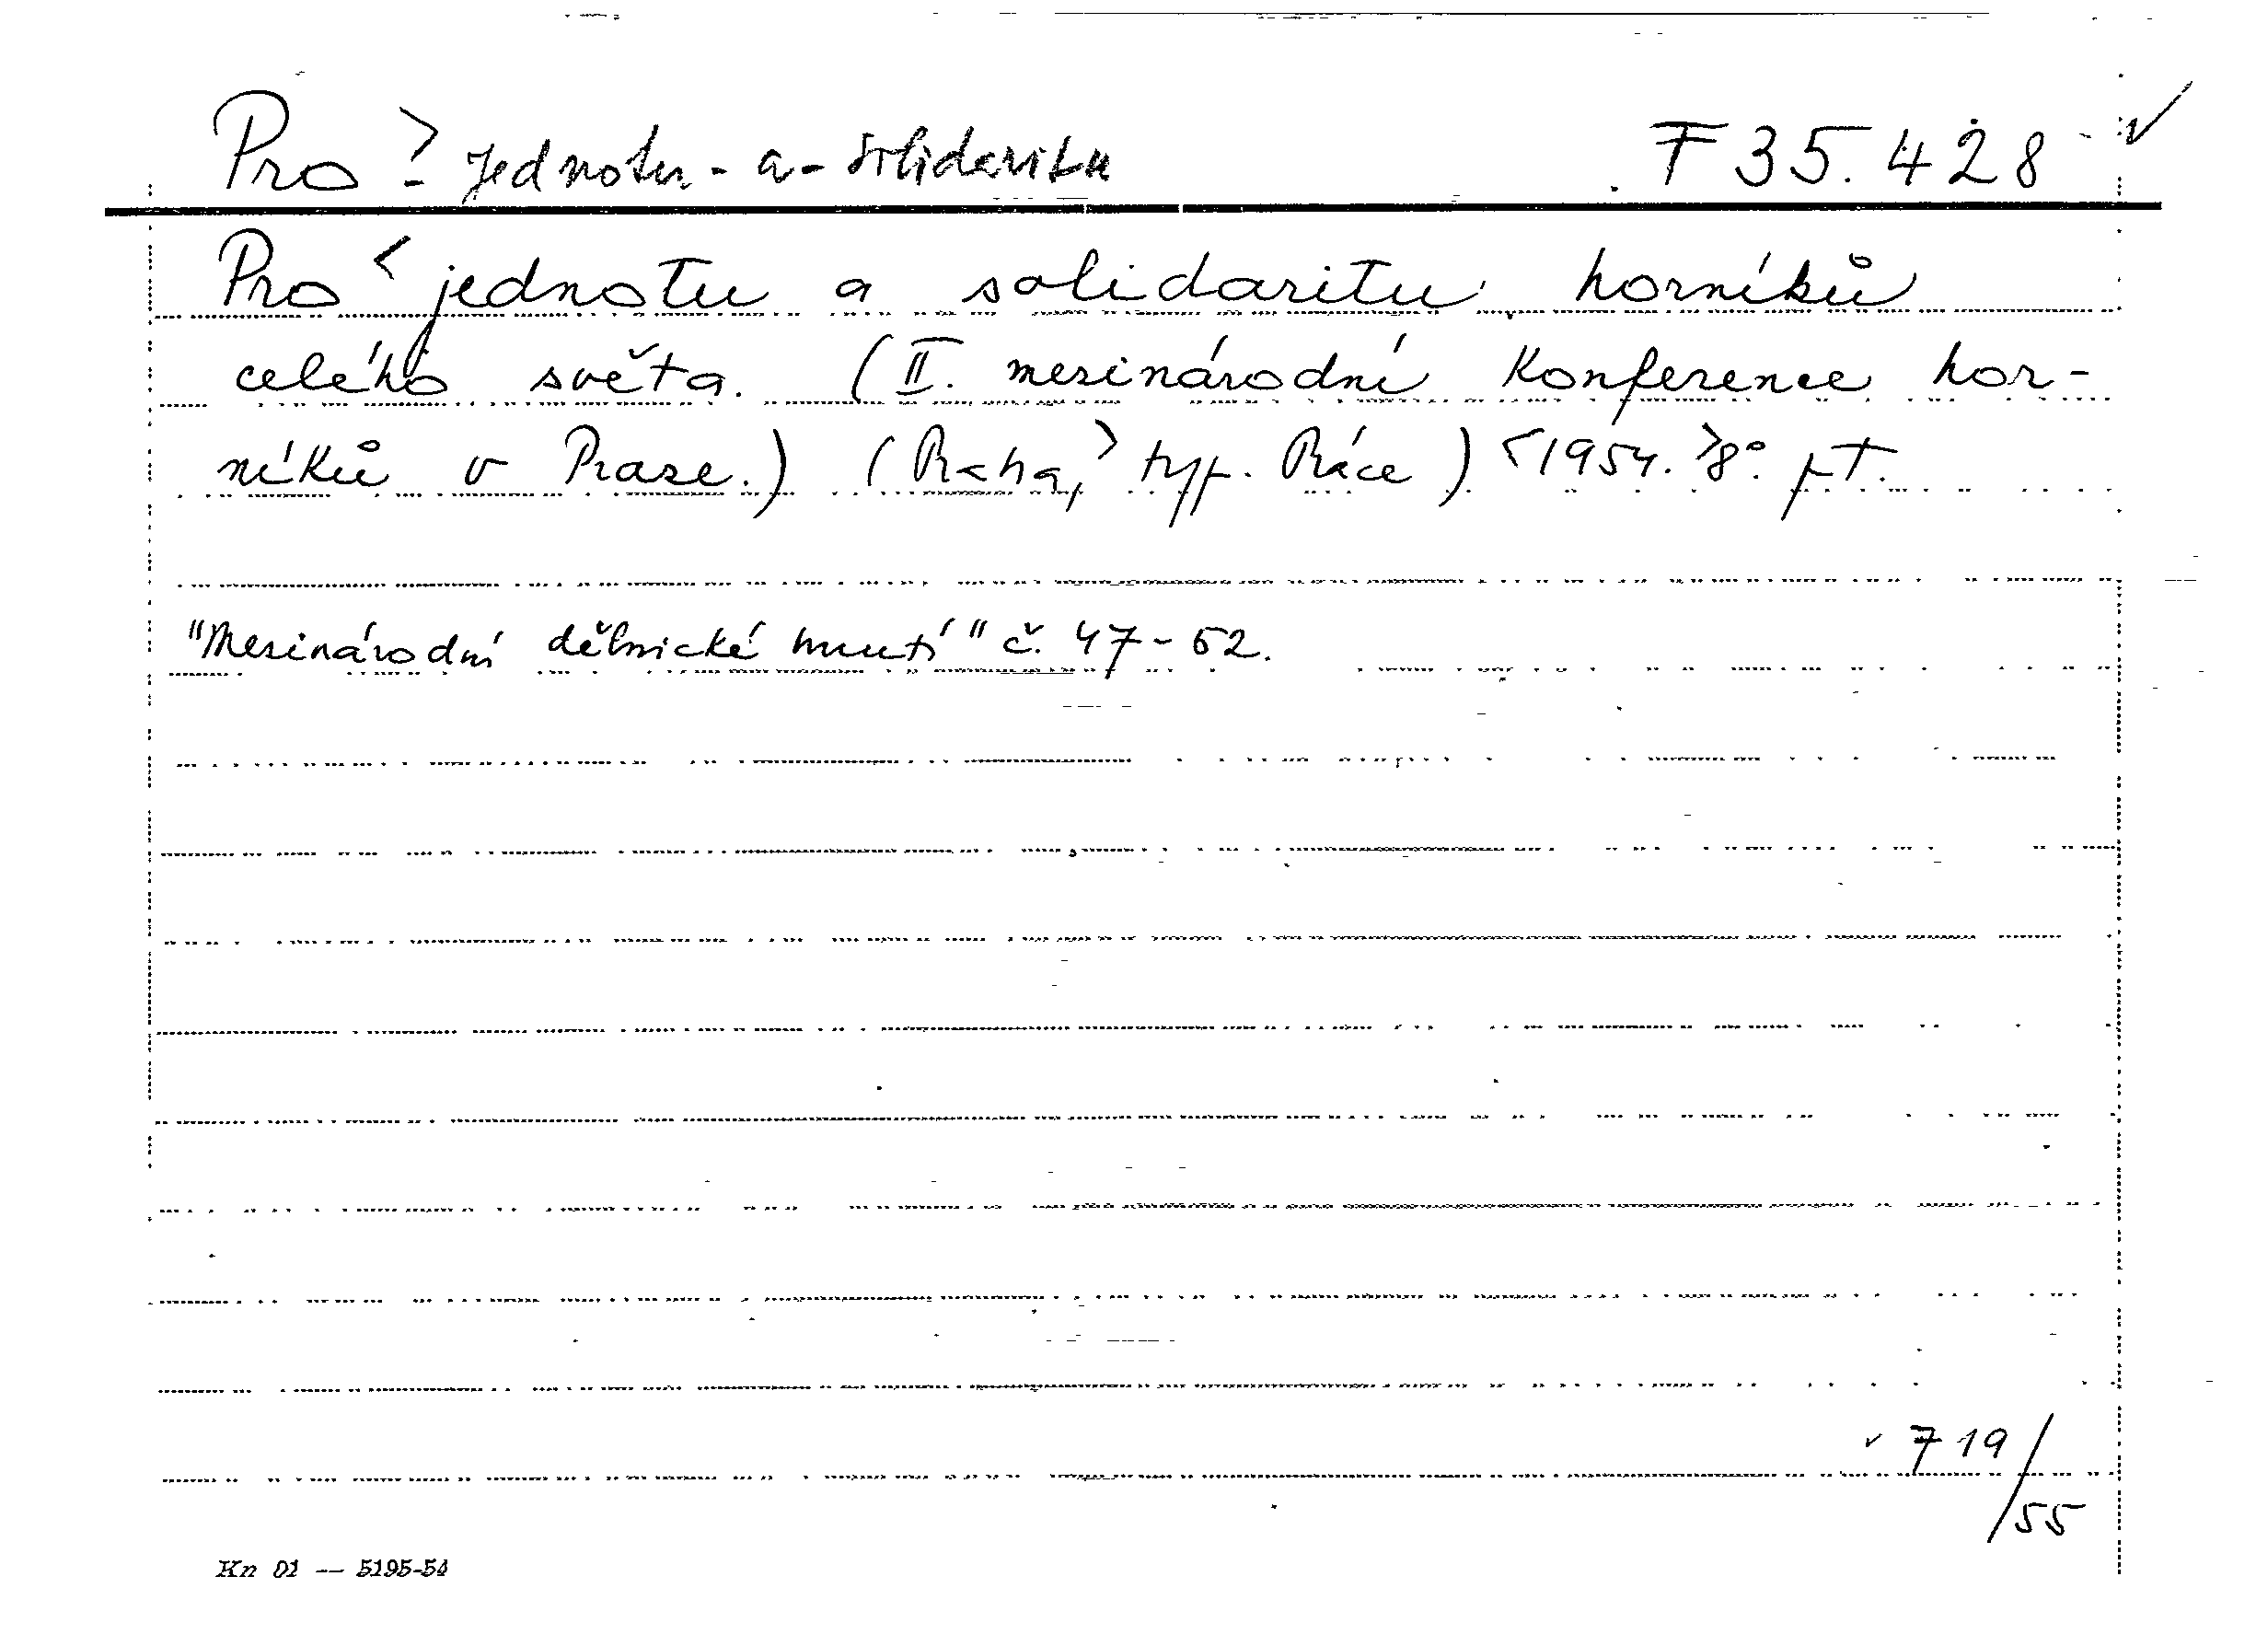 Pro > - jednotu - a - solidaritu F 35.428 - √
Pro < jednotu a solidaritu horníků
celého světa. (II. mezinárodní konference hor-
níků v Praze.) (Praha, > typ. Práce) < 1954. > 8°. pt.
"Mezinárodní dělnické hnutí" č. 47-52.
√ 719/
55
Kn 01 — 5195-54